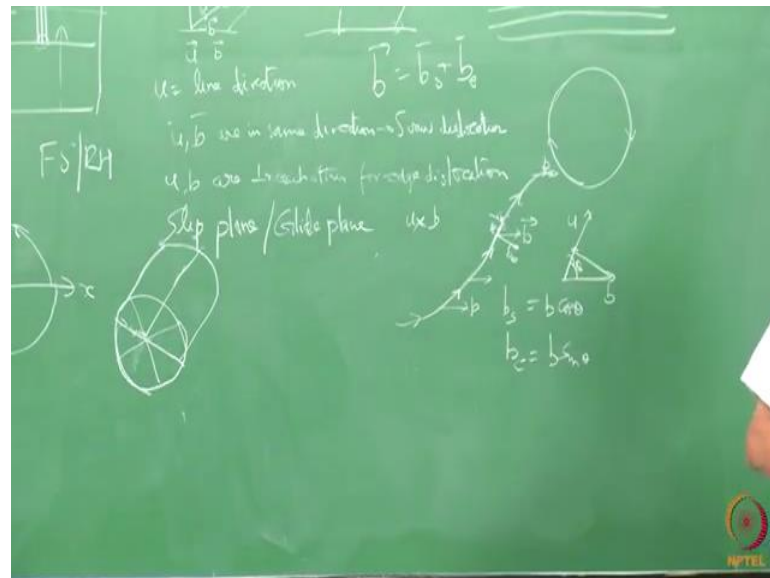 b
u⃗ b⃗
u = line direction
b⃗ = b⃗s + b⃗e
u⃗, b⃗ are in same direction → Screw dislocation
FS/RH
u, b are ⊥ each other for edge dislocation
Slip plane / Glide plane u×b
b
b⃗
u
x
θ
b
b
bs = b cosθ
be = b sinθ
NPTEL